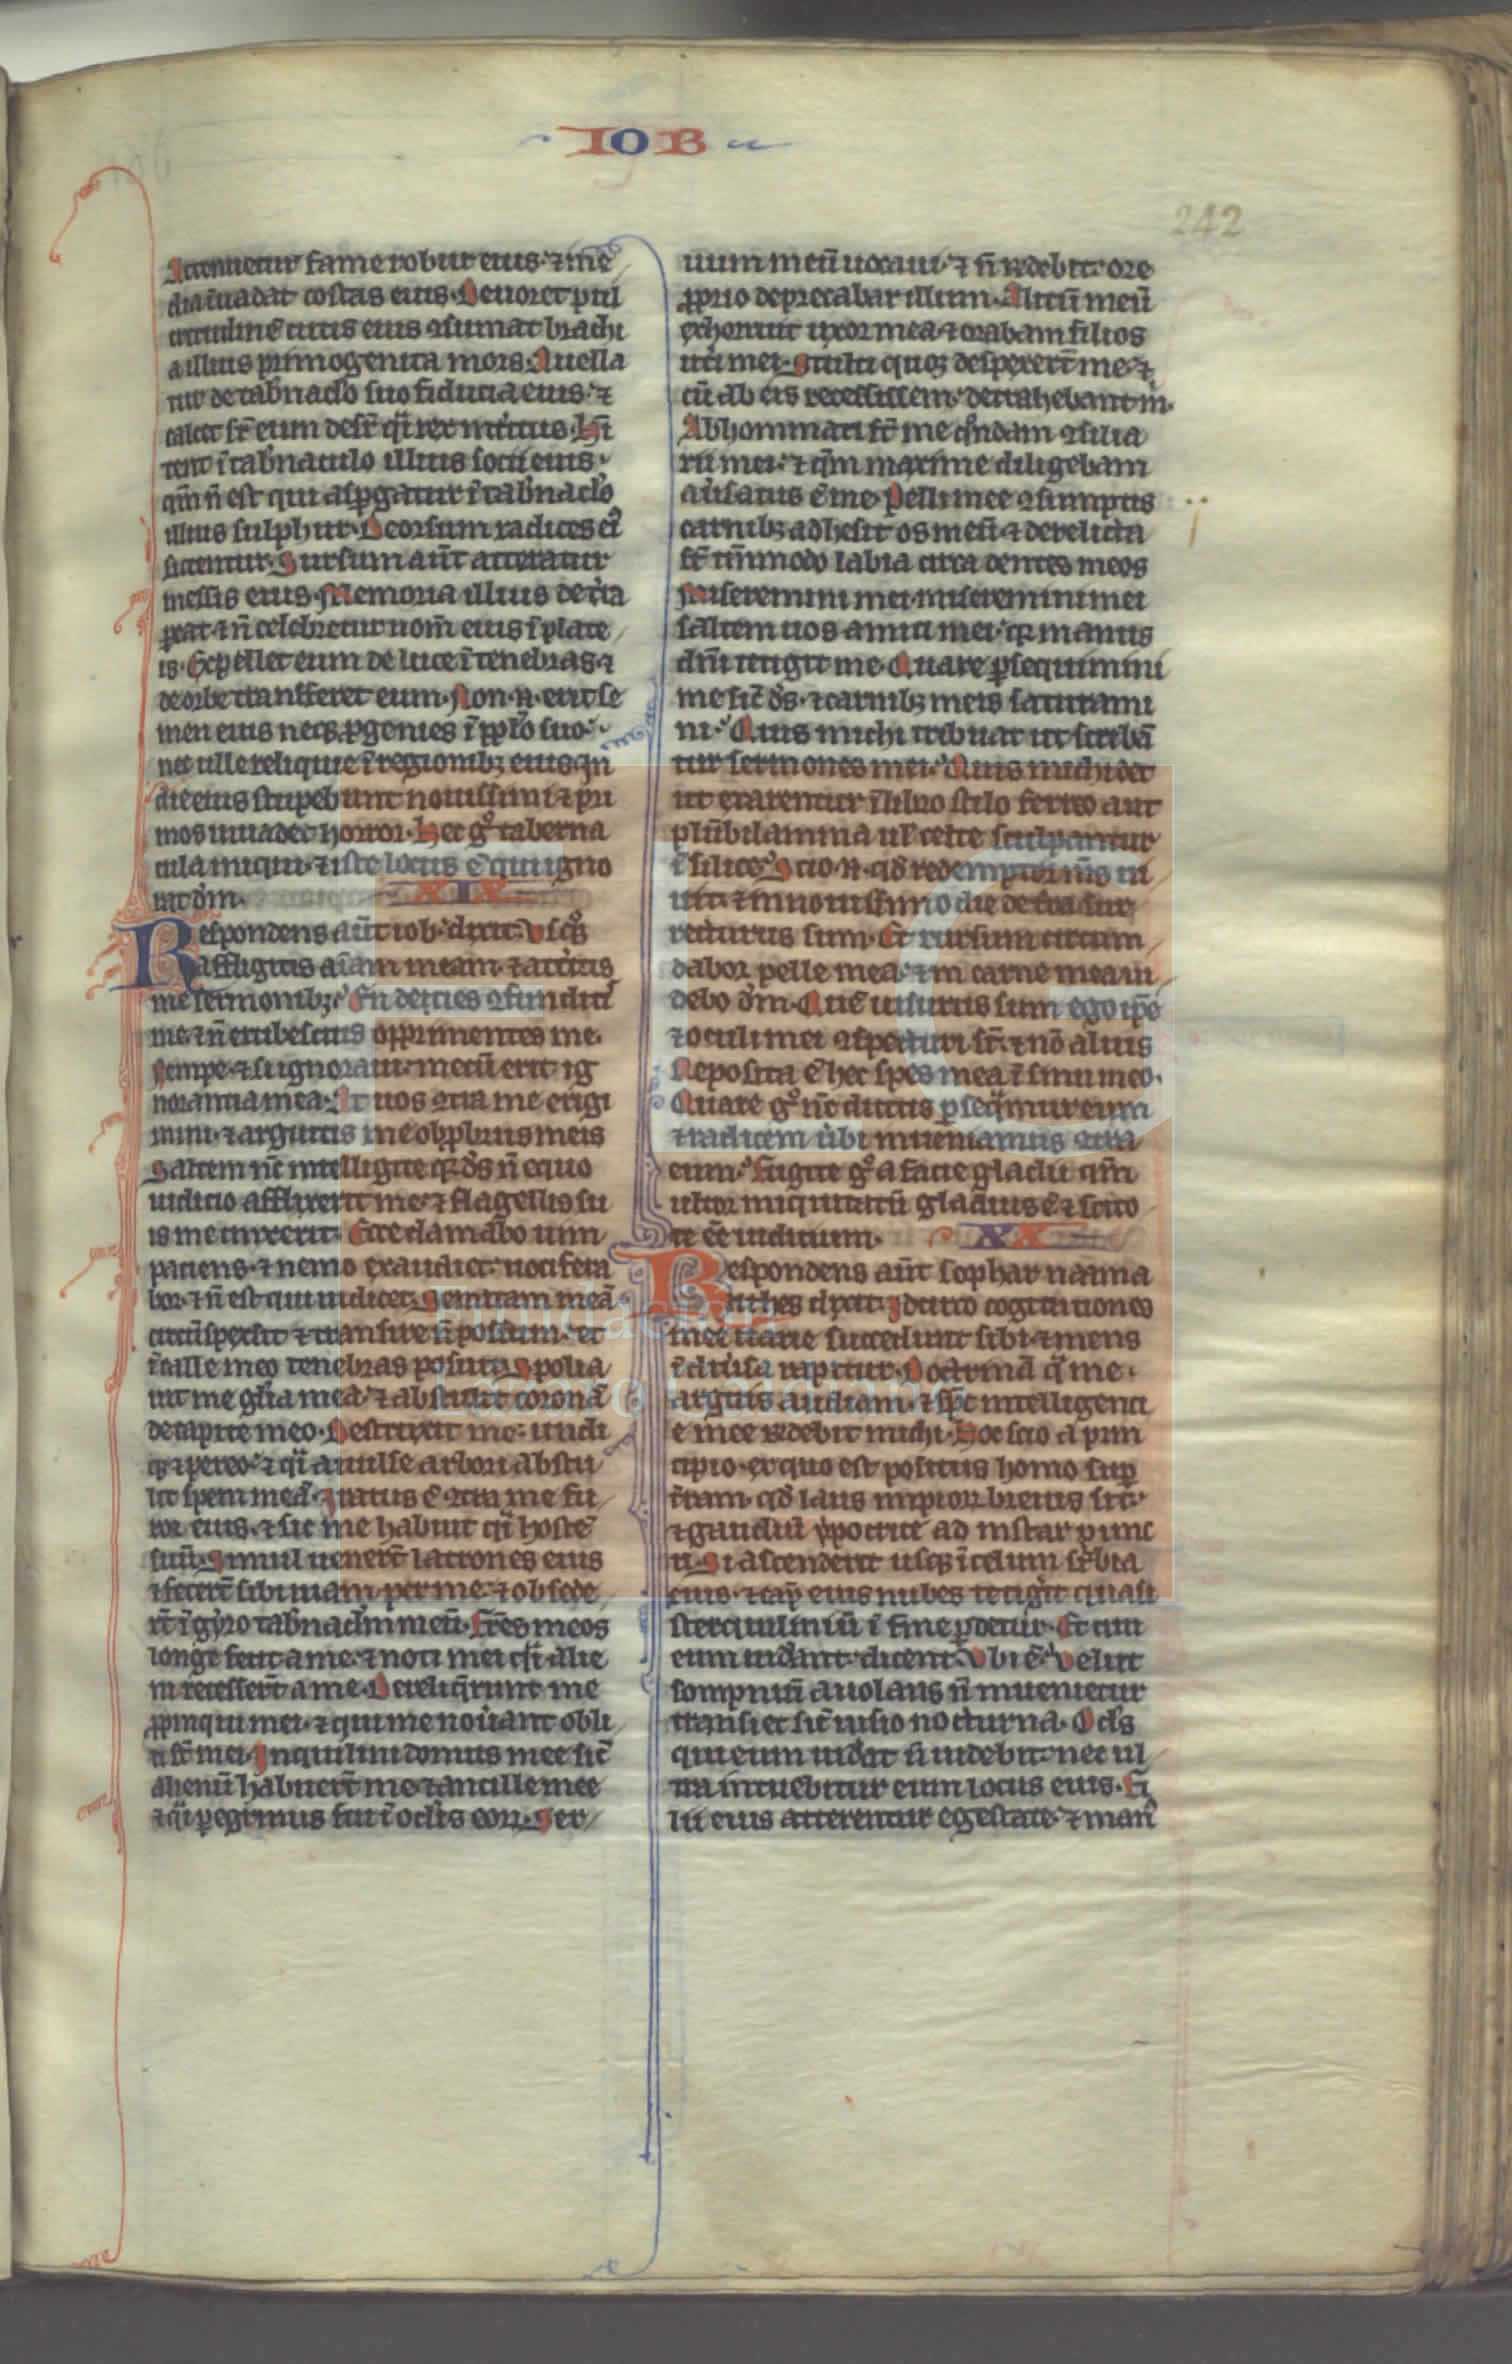 IOB
242
Attenuetur fame robur eius ⁊ īne
dia īuadat costas eius. Deuoret pul
critudinē cutis eius ꝯsumat brachi
a illius primogenita mors. Auella
tur de tab̄naclo suo fiducia eius ⁊
calcet sr̄ eum desr̄ qͥ rex int̄itus. Hī
tent ī tab̄naculo illius socii eius.
qm̄ n̄ est qui aspgatur ī tab̄naclo
illius sulphur. Deorsum radices eiꝰ
siccentur. Sursum aūt atteratur
messis eius. Memoria illius de t̄ra
ꝑeat ⁊ n̄ celebretur nom̄ eius ī plate
is. Expellet eum de luce ī tenebras ⁊
de orbe transferet eum. Non .n. erit se
men eius neqꝫ ꝓgenies ī pplo suo.
nec ulle reliquie ī regionibꝫ eius. In
die eius stupebunt nouissimi ⁊ pri
mos inuadet horror. Hec gͦ taberna
cula iniqui ⁊ iste locus eͥ qui igno
rat dm̄. XIX
Respondens aūt iob. dixit. Vsqꝫ quo
affligitis aīam meam ⁊ atteritis
me sermonibꝫ. En decies ꝯfunditis
me ⁊ n̄ erubescitis opprimentes me.
Nempe ⁊ si ignoraui mecū erit ig
norantia mea. At uos ꝯtra me erigi
mini ⁊ arguitis me obꝓbriis meis
Saltem nc̄ intelligite qꝛ ds̄ n̄ equo
iudicio afflixerit me ⁊ flagellis su
is me cinxerit. Ecce clamabo uim
patiens ⁊ nemo exaudiet. uocifera
bor ⁊ n̄ est qui iudicet. Semitam meā
circūsepsit ⁊ transire n̄ possum. et
ī calle meo tenebras posuit. Spolia
uit me glīa mea ⁊ abstulit coronā
de capite meo. Destruxit me undi
qꝫ ⁊ pereo. ⁊ qͥ auulse arbori abstu
lit spem meā. Iratus ē ꝯtra me fu
ror eius. ⁊ sic me habuit qͥ hostē
suū. Simul uenert̄ latrones eius
⁊ fecert̄ sibi uiam per me ⁊ obsede
rt̄ ī gyro tab̄naclm̄ meū. Fr̄es meos
longe fecit a me ⁊ noti mei qͥ alie
ni recessert̄ a me. Dereliqrunt me
ꝓpinqui mei. ⁊ qui me nouant obli
ti st̄ mei. Inquilini domus mee sic̄
alienū habuert̄ me ⁊ ancille mee
⁊ qͥ ꝑegrinus fui ī oclis eorꝝ. Ser
uum meū uocaui. ⁊ n̄ rn̄debit. ore
ꝓprio deprecabar illum. Alitū meū
exhorruit uxor mea. ⁊ orabam filios
ut̄i mei. Stulti quoqꝫ despexert̄ me ⁊
cū ab eis recessissem. detrahebant m̄.
Abhominati st̄ me qͦndam ꝯsilia
rii mei. ⁊ qm̄ maxime diligebam
au̾satus ē me. Pelli mee ꝯsumptis
carnibꝫ adhesit os meū ⁊ derelicta
st̄ tm̄modo labia circa dentes meos
Miseremini mei. miseremini mei
saltem uos amici mei. qꝛ manus
dn̄i tetigit me. Quare ꝑsequimini
me sic̄ ds̄. ⁊ carnibꝫ meis saturami
ni. Quis michi tribuat ut scribā
tur sermones mei. Quis michi det
ut exarentur ī libro stilo ferreo aut
plūbi lamina ul̄ celte sculpantur
ī silice. Scio .n. qd̄ redemptor ms̄ ui
uit. ⁊ in nouissimo die de t̄ra sur
recturus sum. Et rursum circum
dabor pelle mea. ⁊ in carne mea ui
debo dm̄. Quē uisurus sum ego ip̄e
⁊ oculi mei ꝯspecturi st̄. ⁊ nō alius
Reposita ē hec spes mea ī sinu meo.
Quare gͦ nc̄ dicitis ꝑseqͣmur eum
⁊ radicem u̾bi inueniamus ꝯtra
eum. Fugite gͦ a facie gladii qm̄
ultor iniquitatū gladius ē ⁊ scito
te eē iudicium. XX
Respondens aūt sophar naama
thites dixit. Idcirco cogitationes
mee uarie succedunt sibi. ⁊ mens
ī diu̾sa rapitur. Doctrinā qͣ me
arguis audiam. ⁊ sp̄c intelligenti
e mee rn̄debit michi. Hoc scio a prin
cipio. ex quo est positus homo sup
t̄ram. qd̄ laus impiorꝝ breuis sit.
⁊ gaudiū ypocrite ad instar punc
ti. Si ascenderit usqꝫ ī celum sꝑbia
eius. ⁊ cap̄ eius nubes tetigit. quasi
sterquiliniū ī fine ꝑdetur. Et qui
eum uid̾ant dicent. Vbi ē. Velut
sompniū auolans n̄ inuenietur
transiet sic̄ uisio nocturna. Ocls
qui eum uid̾at n̄ uidebit. nec ul
tra intuebitur eum locus eius. Fi
lii eius atterentur egestate. ⁊ manꝰ